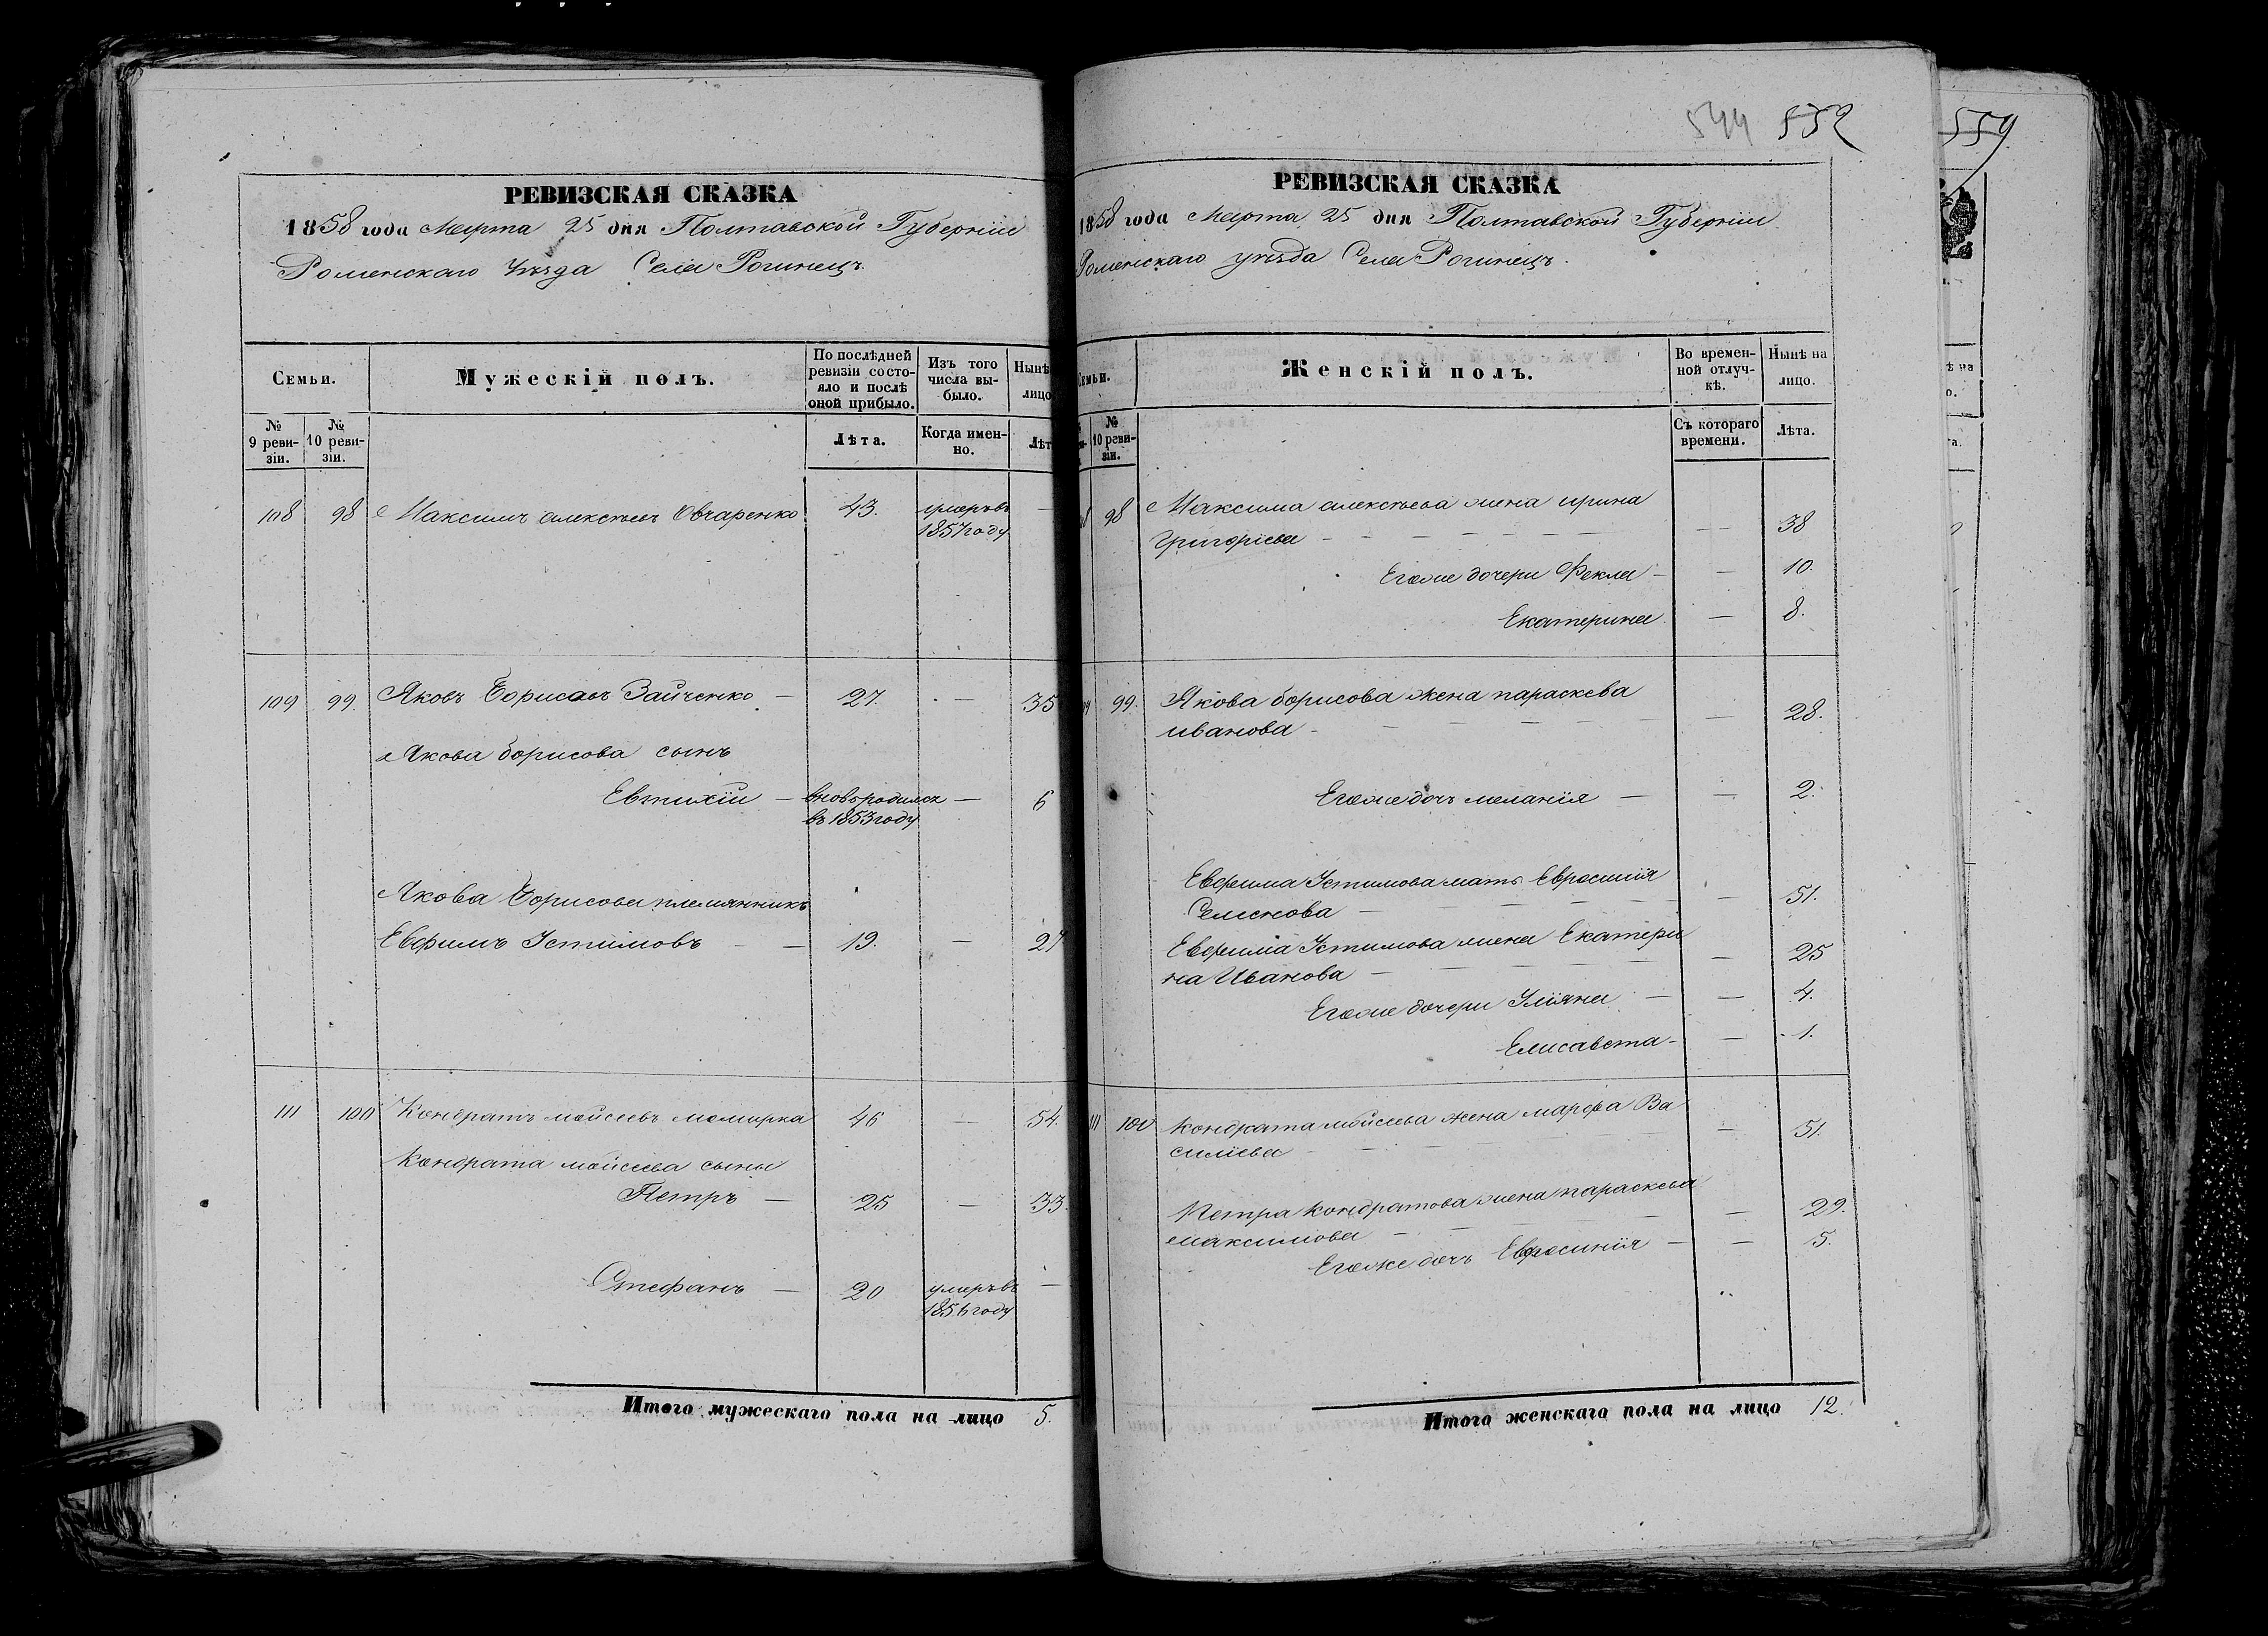 РЕВИЗСКАЯ СКАЗКА
1858 года Марта 25 дня Полтавской Губерніи
Роменскаго Уѣзда Села Рогинецъ.
Семьи.
Мужескій полъ.
По послѣдней ревизіи состояло и послѣ оной прибыло.
Изъ того числа выбыло.
Нынѣ
лицо
№ 9 ревизіи.
№ 10 ревизіи.
Лѣта.
Когда именно.
Лѣт
108 98 Максимъ Алексѣевъ Овчаренко 43. умеръ въ 1857 году —
109 99. Яковъ Борисовъ Зайченко — 27. — 35
Якова Борисова сынъ
Евтихій — вновь родился в 1853 году — 6
Якова Борисова племянникъ
Евфимъ Устимовъ — — 19. — 27
111 100 Кондратъ Мойсеевъ 46 — 54.
Кондрата Мойсеева сыны
Петръ — 25 — 33.
Стефанъ — 20 умеръ въ 1856 году —
Итого мужескаго пола на лицо 5.
544 552
РЕВИЗСКАЯ СКАЗКА
1858 года Марта 25 дня Полтавской Губерніи
Роменскаго уѣзда Села Рогинецъ.
Семьи.
Женскій полъ.
Во временной отлучкѣ.
Нынѣ на лицо.
№ 10 ревизіи.
Съ котораго времени.
Лѣта.
98 Максима Алексѣева жена Ирина
Григорьева — — 38
Его же дочери Фекла — — 10.
Екатерина — 8.
99. Якова Борисова жена Параскева
Иванова — — 28.
Его же дочь Меланія — — 2.
Евфима Устимова мать Евросинія
Семенова — — 51.
Евфима Устимова жена Екатери
на Иванова — — 25
Его же дочери Уліяна — — 4.
Елисавета — — 1.
111 100 Кондрата Мойсеева жена Марфа Ва
силіева — — 51.
Петра Кондратова жена Параскева
Максимова — — 29.
Его же дочь Евфросинія — — 5.
Итого женскаго пола на лицо 12.
559